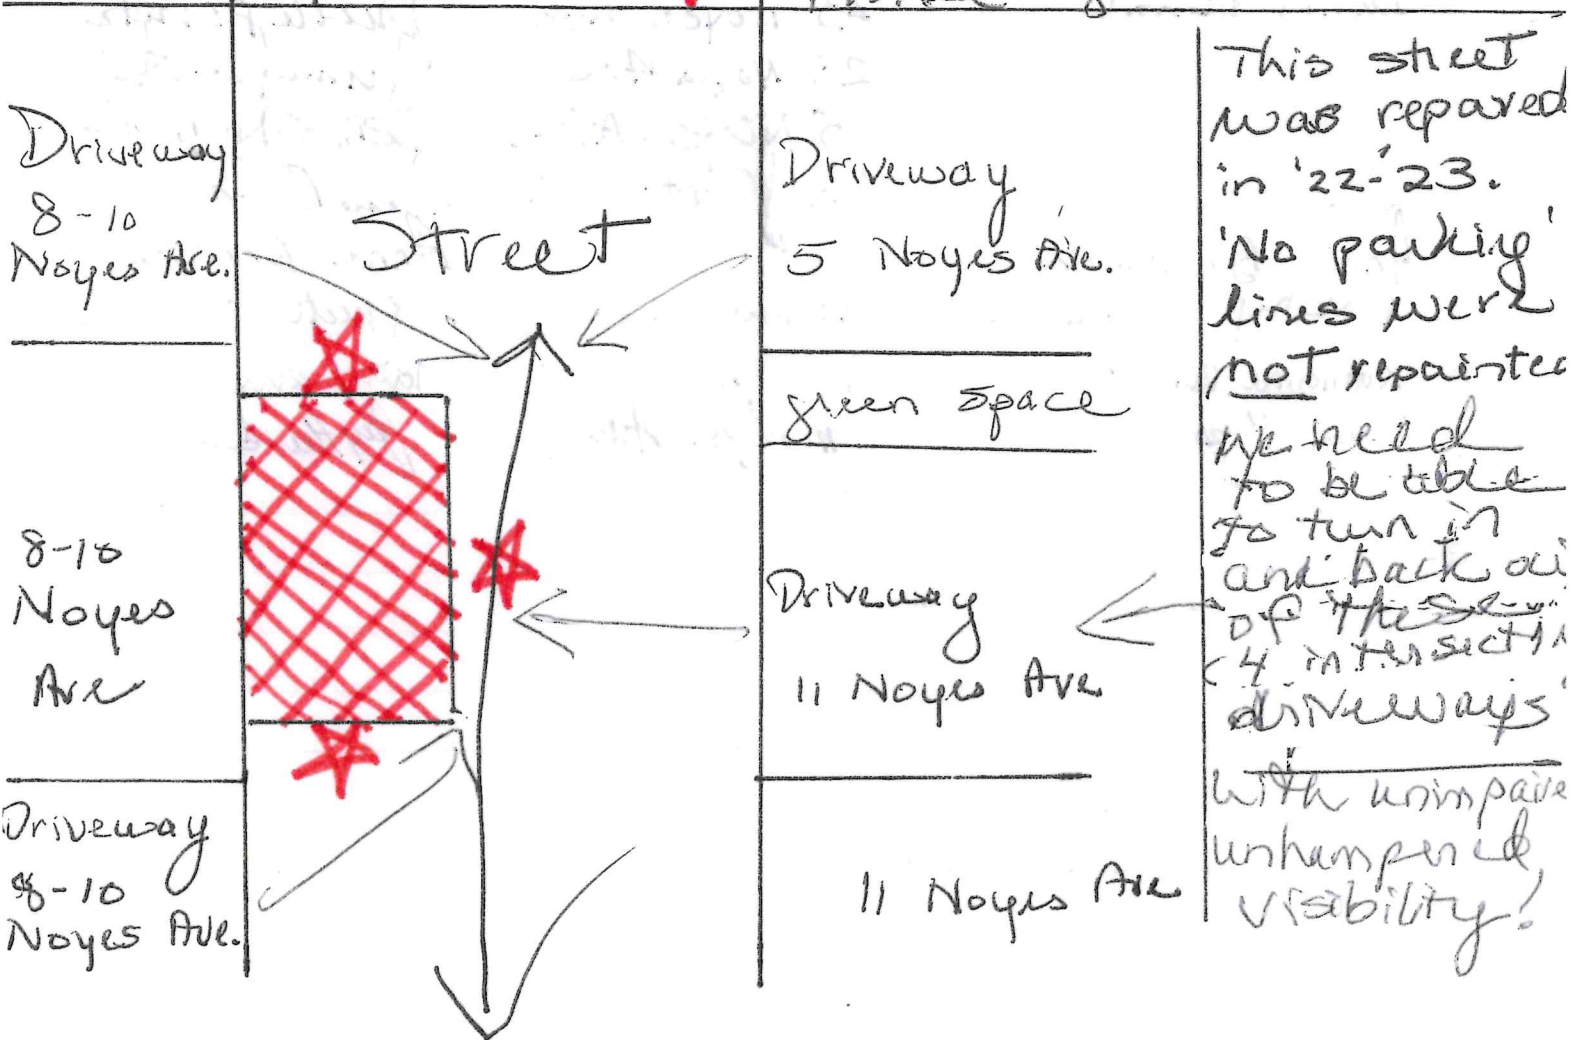 Driveway
8-10
Noyes Ave.
8-10
Noyes
Ave
Driveway
8-10
Noyes Ave.
Street
Driveway
5 Noyes Ave.
green space
Driveway
11 Noyes Ave
11 Noyes Ave
This street
was repaved
in '22-'23.
'No parking'
lines were
not repainted
we need
to be able
to turn in
and back
of these
4
driveways
with
unhampered
visibility!